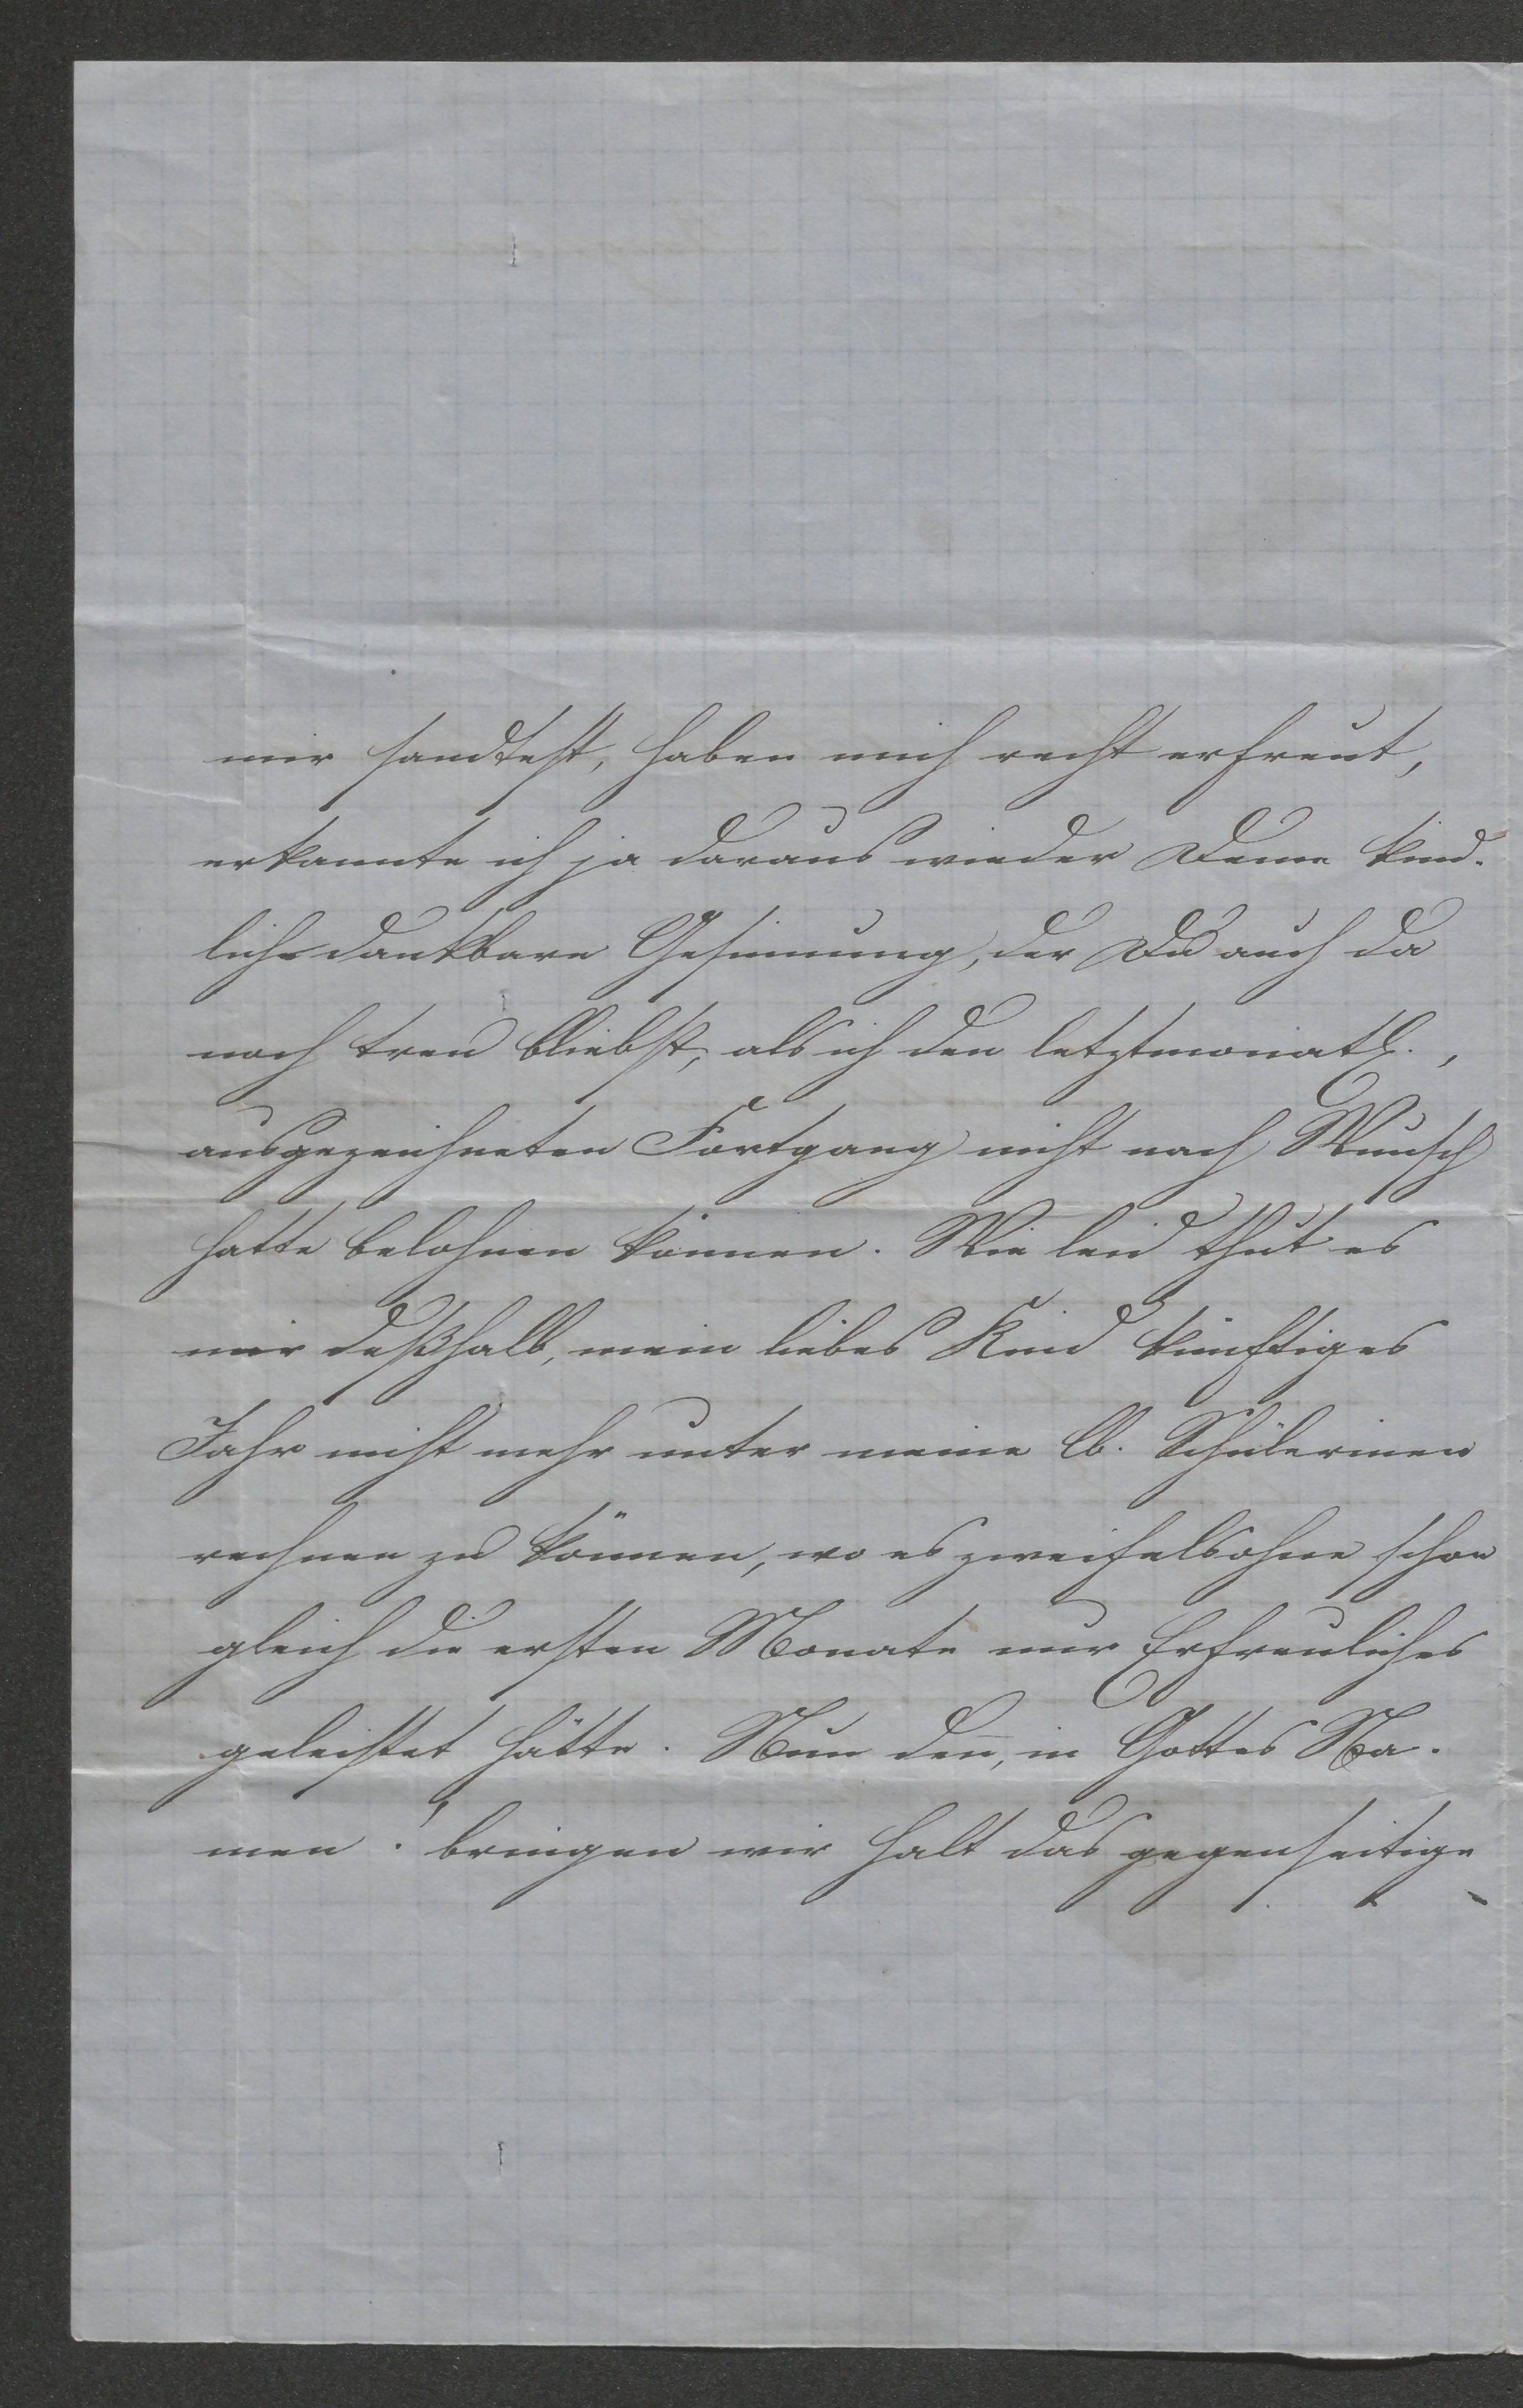 mir sandtest, haben mich recht erfreut,
erkannte ich ja daraus wieder Deine kind-
lich dankbare Gesinnung, der Du auch da
noch treu bliebst, als ich den letztmonatl.,
ausgezeichneten Fortgang nicht nach Wunsch
hatte belohnen können. Wie leid thut es
mir deßhalb, mein liebes Kind künftiges
Jahr nicht mehr unter meine lb. Schülerinen
rechnen zu können, wo es zweifelsohne schon
gleich die ersten Monate nur Erfreuliches
geleistet hätte. Nun deñ, in Gottes Na-
men! bringen wir halt das gegenseitige